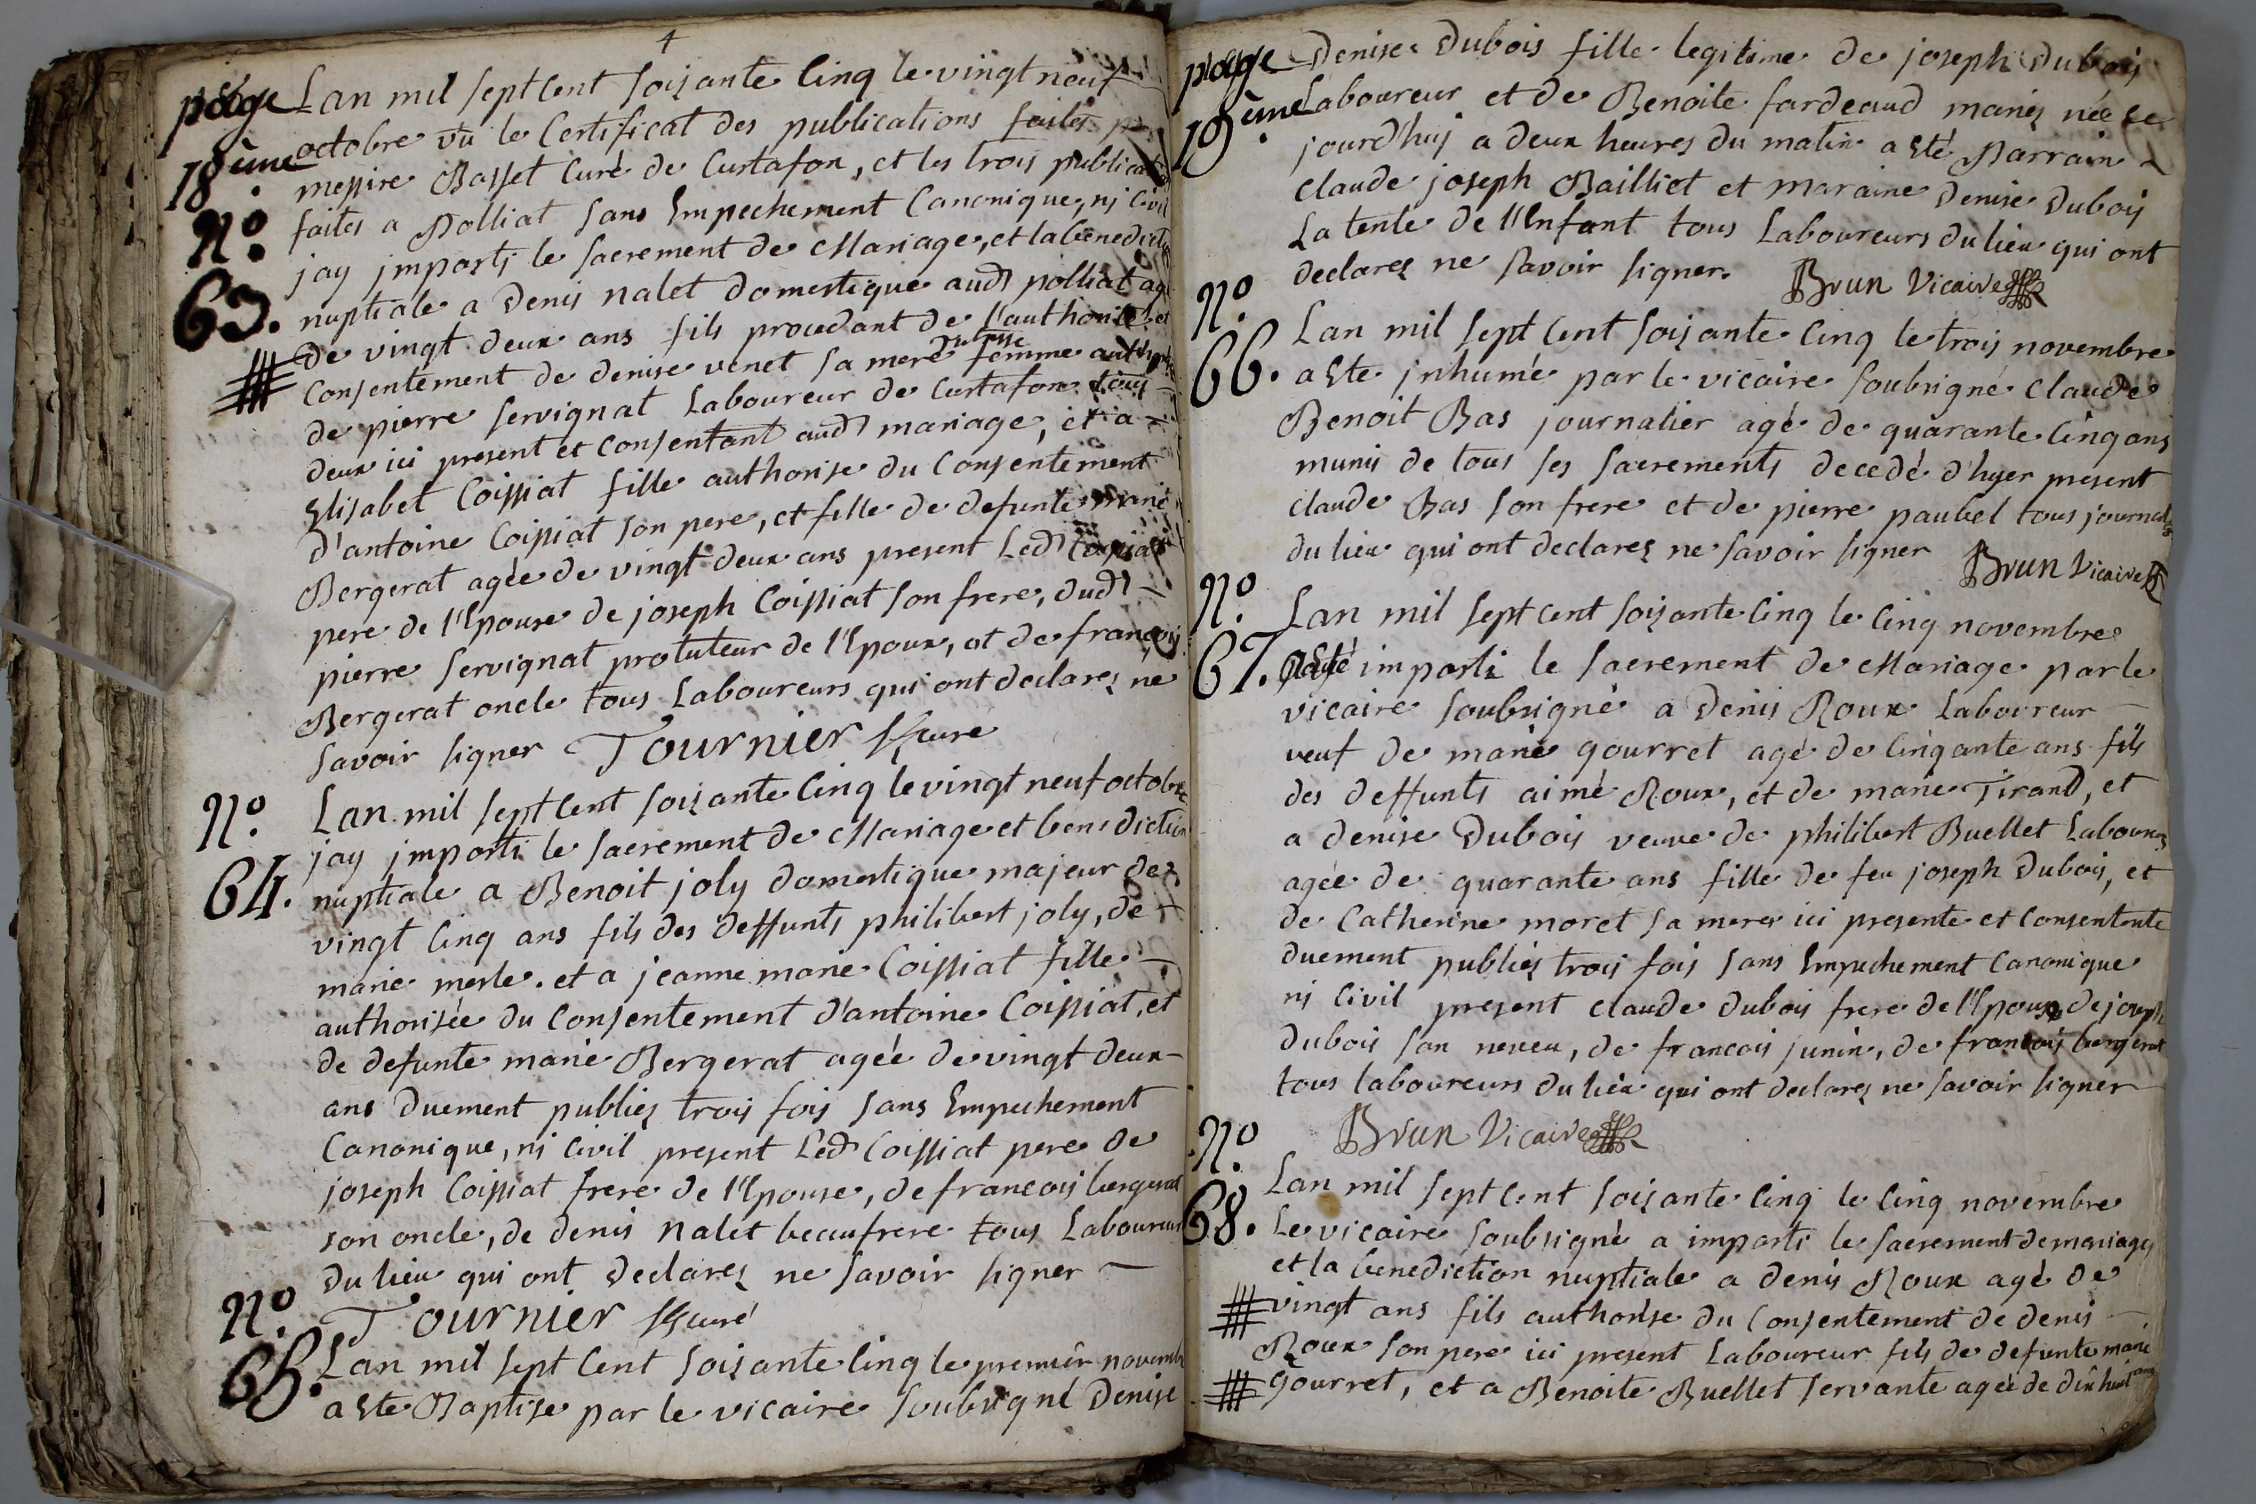 page
18ème
4
Lan mil sept cent soizante cinq le vingt neuf
octobre vu le certificat des publications faites
messire Basset curé de Curtafon, et les trois
faites a Polliat sans Empechement Canonique, ni civil
jay imparti le sacrement de Mariage, et la
nuptiale a Denis nalet domestique aud polliat
de vingt deux ans fils procedant de l'authorité et
Consentement de denise venet sa mere femme
de pierre servignat Laboureur de Curtafon tous
deux ici present et consentant aud mariage, et a
Elisabet Coissiat fille authorise du Consentement
d'antoine Coissiat son pere, et fille de defunte marie
Bergerat agée de vingt deux ans present Led Coissiat
pere de l'Epouse de joseph Coissiat son frere, dud
pierre servignat protuteur de l'Epoux, et de francois
Bergerat oncle tous Laboureurs qui ont declarez ne
savoir signer Tournier curé
No.
63.
Lan mil sept cent soizante cinq le vingt neuf octobre
jay imparti le sacrement de Mariage et benediction
nuptiale a Benoit joly domestique majeur de
vingt cinq ans fils des deffunts philibert joly, de
marie merle. et a jeanne marie Coissiat fille
authorisée du Consentement d'antoine Coissiat, et
de defunte marie Bergerat agée de vingt deux
ans duement publiez trois fois sans Empechement
Canonique, ni Civil present Led Coissiat pere de
joseph Coissiat frere de l'Epouse, de francois bergerat
son oncle, de denis Nalet beaufrere tous Laboureurs
du lieu qui ont declarez ne savoir signer
Tournier curé
No.
64.
Lan mil sept Cent soizante cinq le premier novembre
a ete Baptise par le vicaire soubsigné Denise
No.
65.
page
19ème
Denise Dubois fille legitime de joseph Dubois
Laboureur et de Benoite fardeaud mariez née ce
jourd'huj a deux heures du matin a eté Parrain
claude joseph Bailliet et maraine Denise Dubois
La tente de l'Enfant tous Laboureurs du lieu qui ont
declarez ne savoir signer. Brun Vicaire
No.
66.
Lan mil sept cent soizante cinq le trois novembre
a ete inhumé par le vicaire soubsigné Claude
Benoit Bas journalier agé de quarante cinq ans
munis de tous ses sacrements decedé d'hyer present
claude Bas son frere et de pierre paubel tous
du lieu qui ont declarez ne savoir signer Brun Vicaire
No.
67.
Lan mil sept cent soizante cinq le cinq novembre
imparti le sacrement de Mariage par le
vicaire soubsigné a Denis Roux Laboureur
veuf de marie gourret agé de cinqante ans fils
des deffunts aimé Roux, et de marie Tirand, et
a denise Dubois veuve de philibert Buellet Laboureur
agée de quarante ans fille de feu joseph Dubois, et
de Catherine moret sa mere ici presente et consentente
duement publiés trois fois sans Empechement Canonique
ni Civil present claude dubois frere de l'Epouse de joseph
dubois son neveu, de francois junin, de francois bergerat
tous laboureurs du lieu qui ont declarez ne savoir signer
Brun Vicaire
No.
68.
Lan mil sept cent soizante cinq le cinq novembre
Le vicaire soubsigné a imparti le sacrement de mariage
et la benediction nuptiale a denis Roux agé de
vingt ans fils authorise du Consentement de denis
Roux son pere ici present Laboureur fils de defunte marie
gourret, et a Benoite Buellet servante agée de dix huit ans